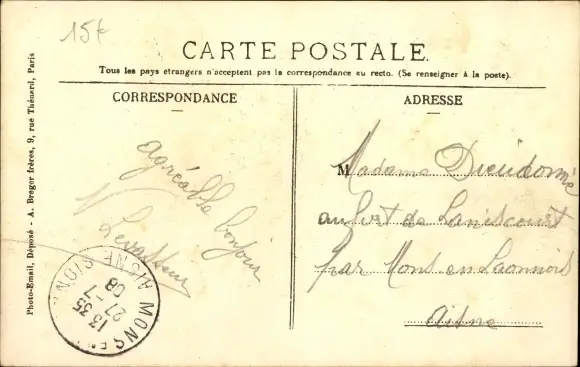 15f
CARTE POSTALE.
Tous les pays étrangers n'acceptent pas la correspondance au recto. (Se renseigner à la poste).
CORRESPONDANCE
ADRESSE
Photo-Email, Déposé - A. Breger frères, 9, rue Thénard, Paris
agréable bonjour
Levasseur
Madame Dieudonné
au fort de Laniscourt
par Mons en Laonnois
Aisne
MONS EN
AISNE
13 35
27-7
08